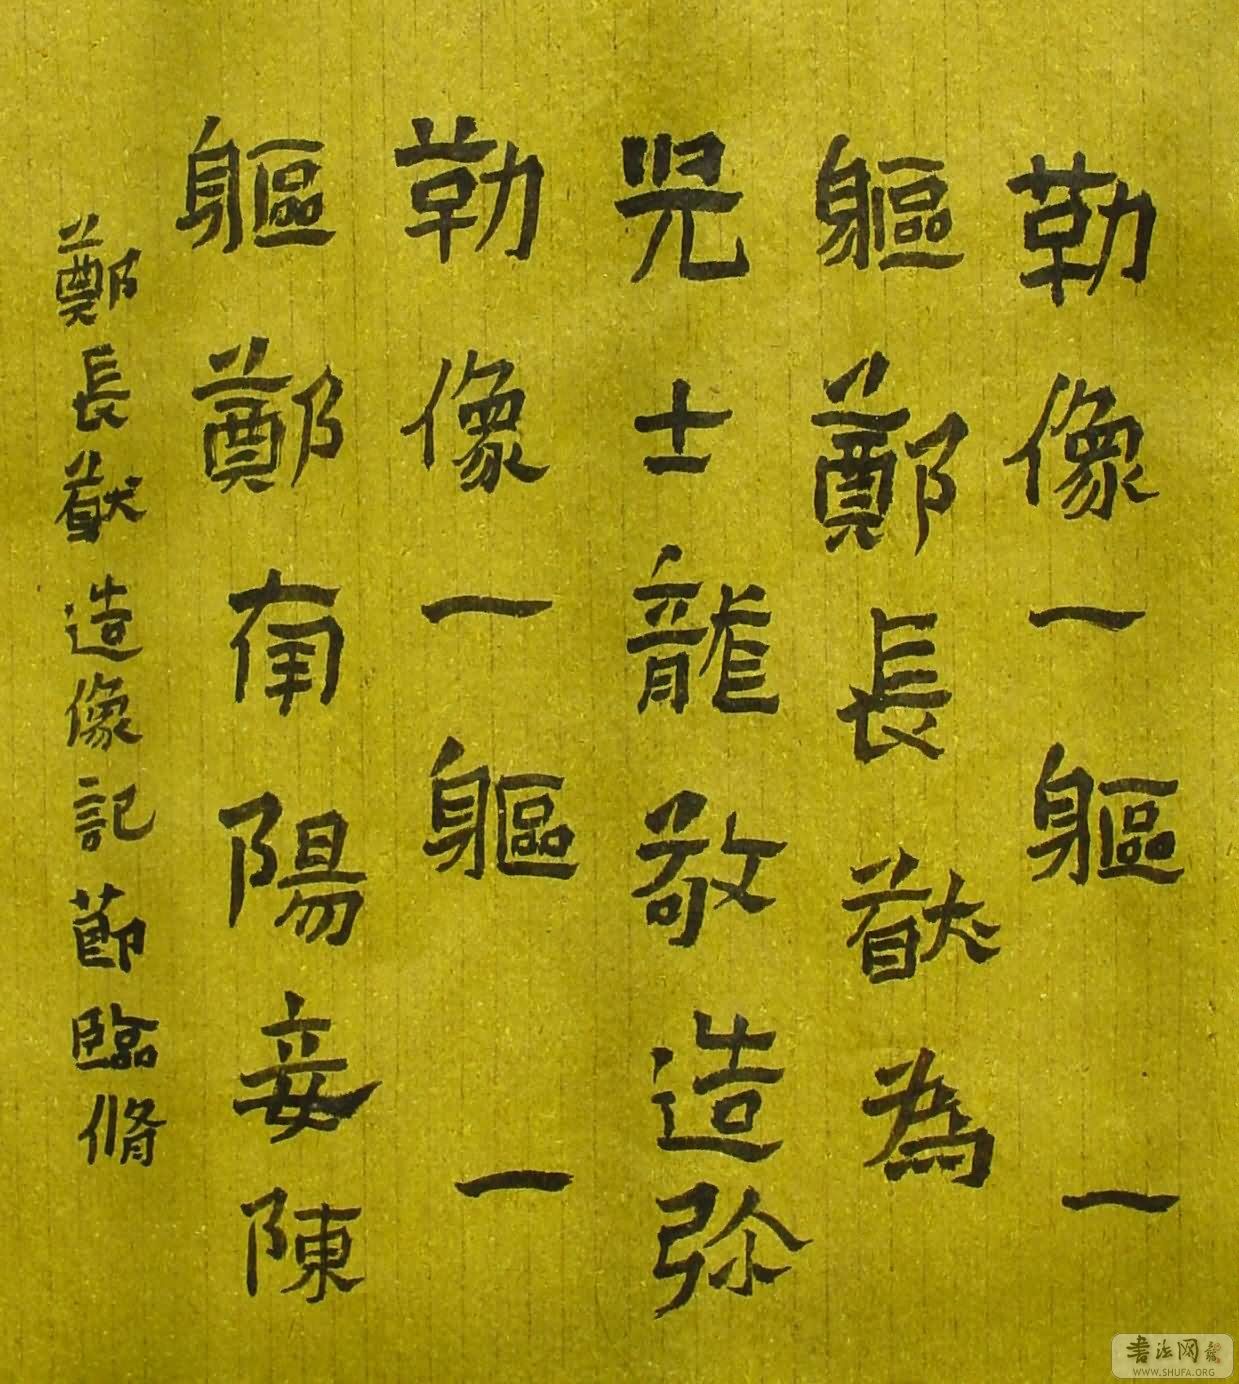 勒像一軀一
軀鄭長猷為
兕士龍敬造弥
勒像一軀一
軀鄭南陽妾陳
鄭長猷造像記節臨脩
書法网
WWW.SHUFA.ORG